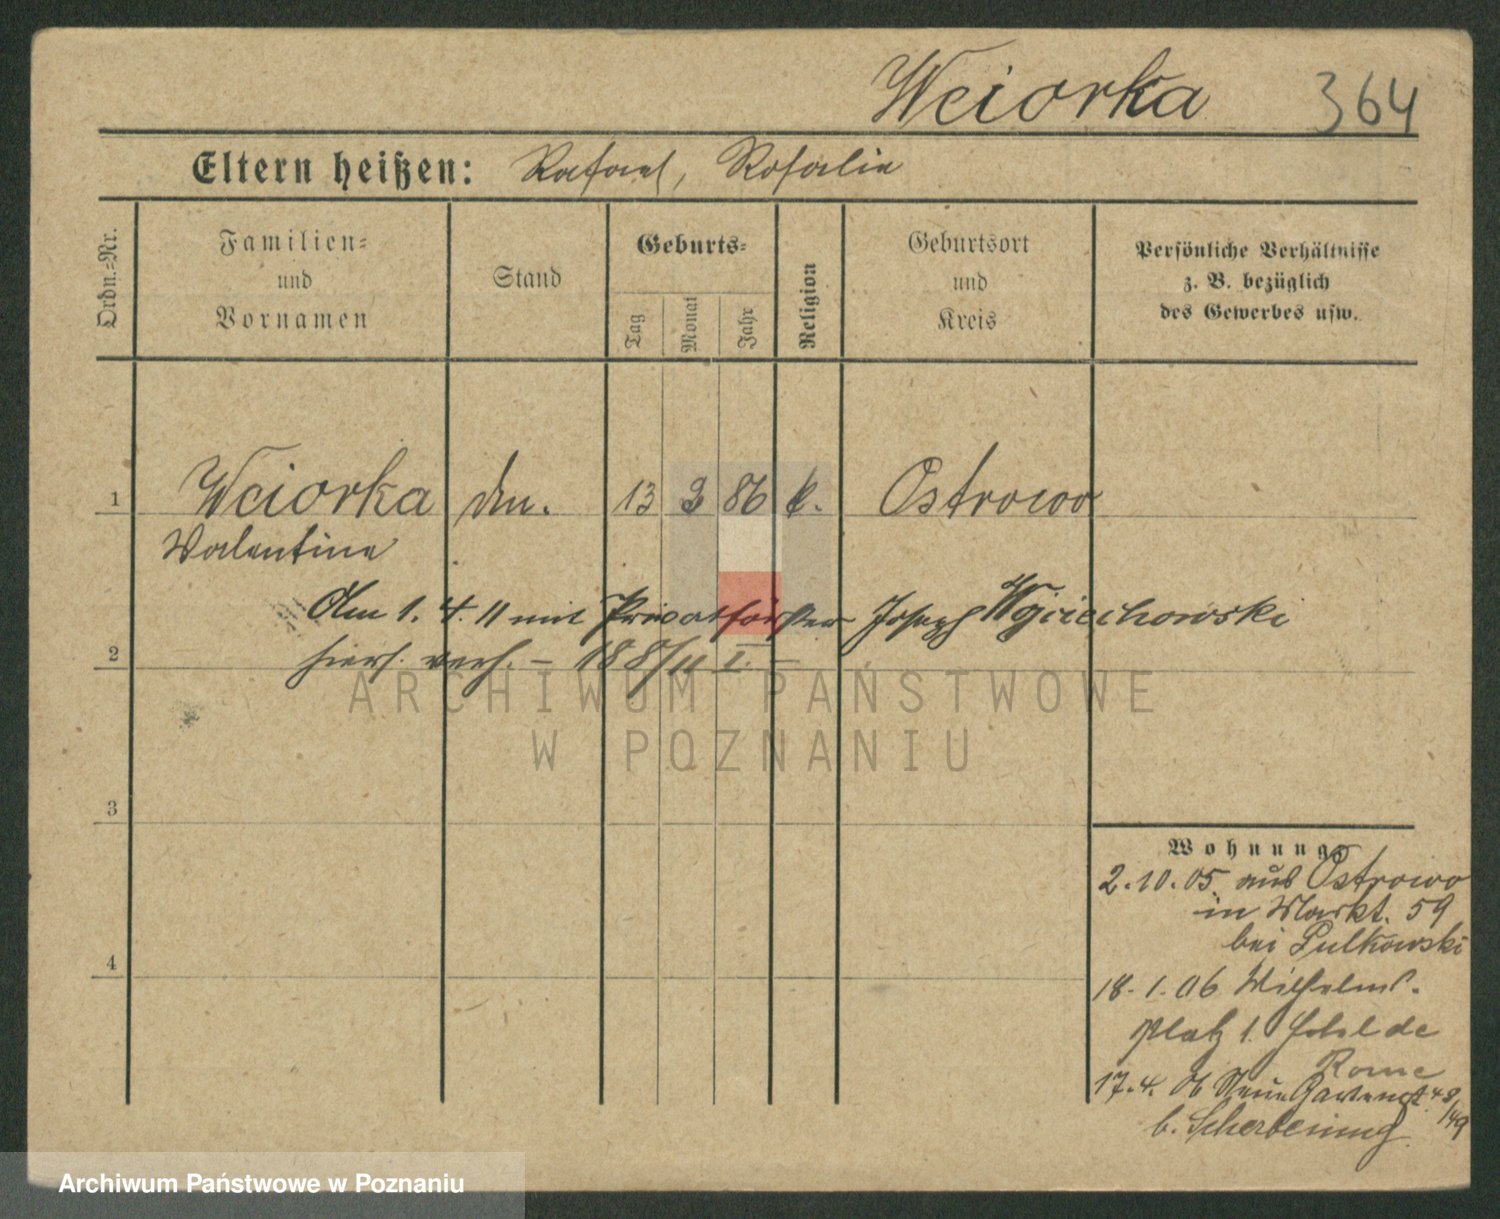 Weiorka 364
Eltern heißen: Rafael, Rosalie
Ordn.=Nr.
Familien=
und
Vornamen
Stand
Geburts=
Tag
Monat
Jahr
Religion
Geburtsort
und
Kreis
Persönliche Verhältnisse
z. B. bezüglich
des Gewerbes usw.
1 Weiorka 13 2 86 k. Ostrowo
Valentine
Am 1. 4. 11 mit Privatförster Joseph Wojciechowski
2 hiers. verh. – 188/11 I. –
ARCHIWUM PAŃSTWOWE
W POZNANIU
3
4
Wohnung
2.10.05 aus Ostrowo
in Markt. 59
bei Pulkowski
18.1.06 Wilhelms.
platz 1. Hotel de
Rome
17.4.06 Neue Gartenst. 48/49
b. Scherbening
Archiwum Państwowe w Poznaniu